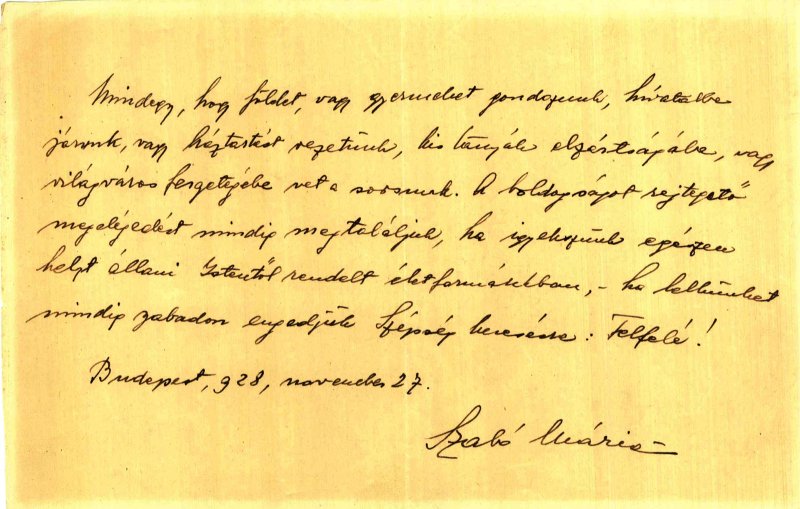 Mindegy, hogy földet, vagy gyermeket gondozunk, hivatalba
járunk, vagy háztartást vezetünk, kis tanyák elzártságába, vagy
világváros fergetegébe vet a sorsunk. A boldogságot rejtegető
megelégedést mindig megtaláljuk, ha igyekszünk egészen
helyt állani Istentől rendelt életformánkban, - ha lelkünket
mindig szabadon engedjük Szépség keresésre: Felfelé!
Budapest, 928, november 27.
Szabó Mária